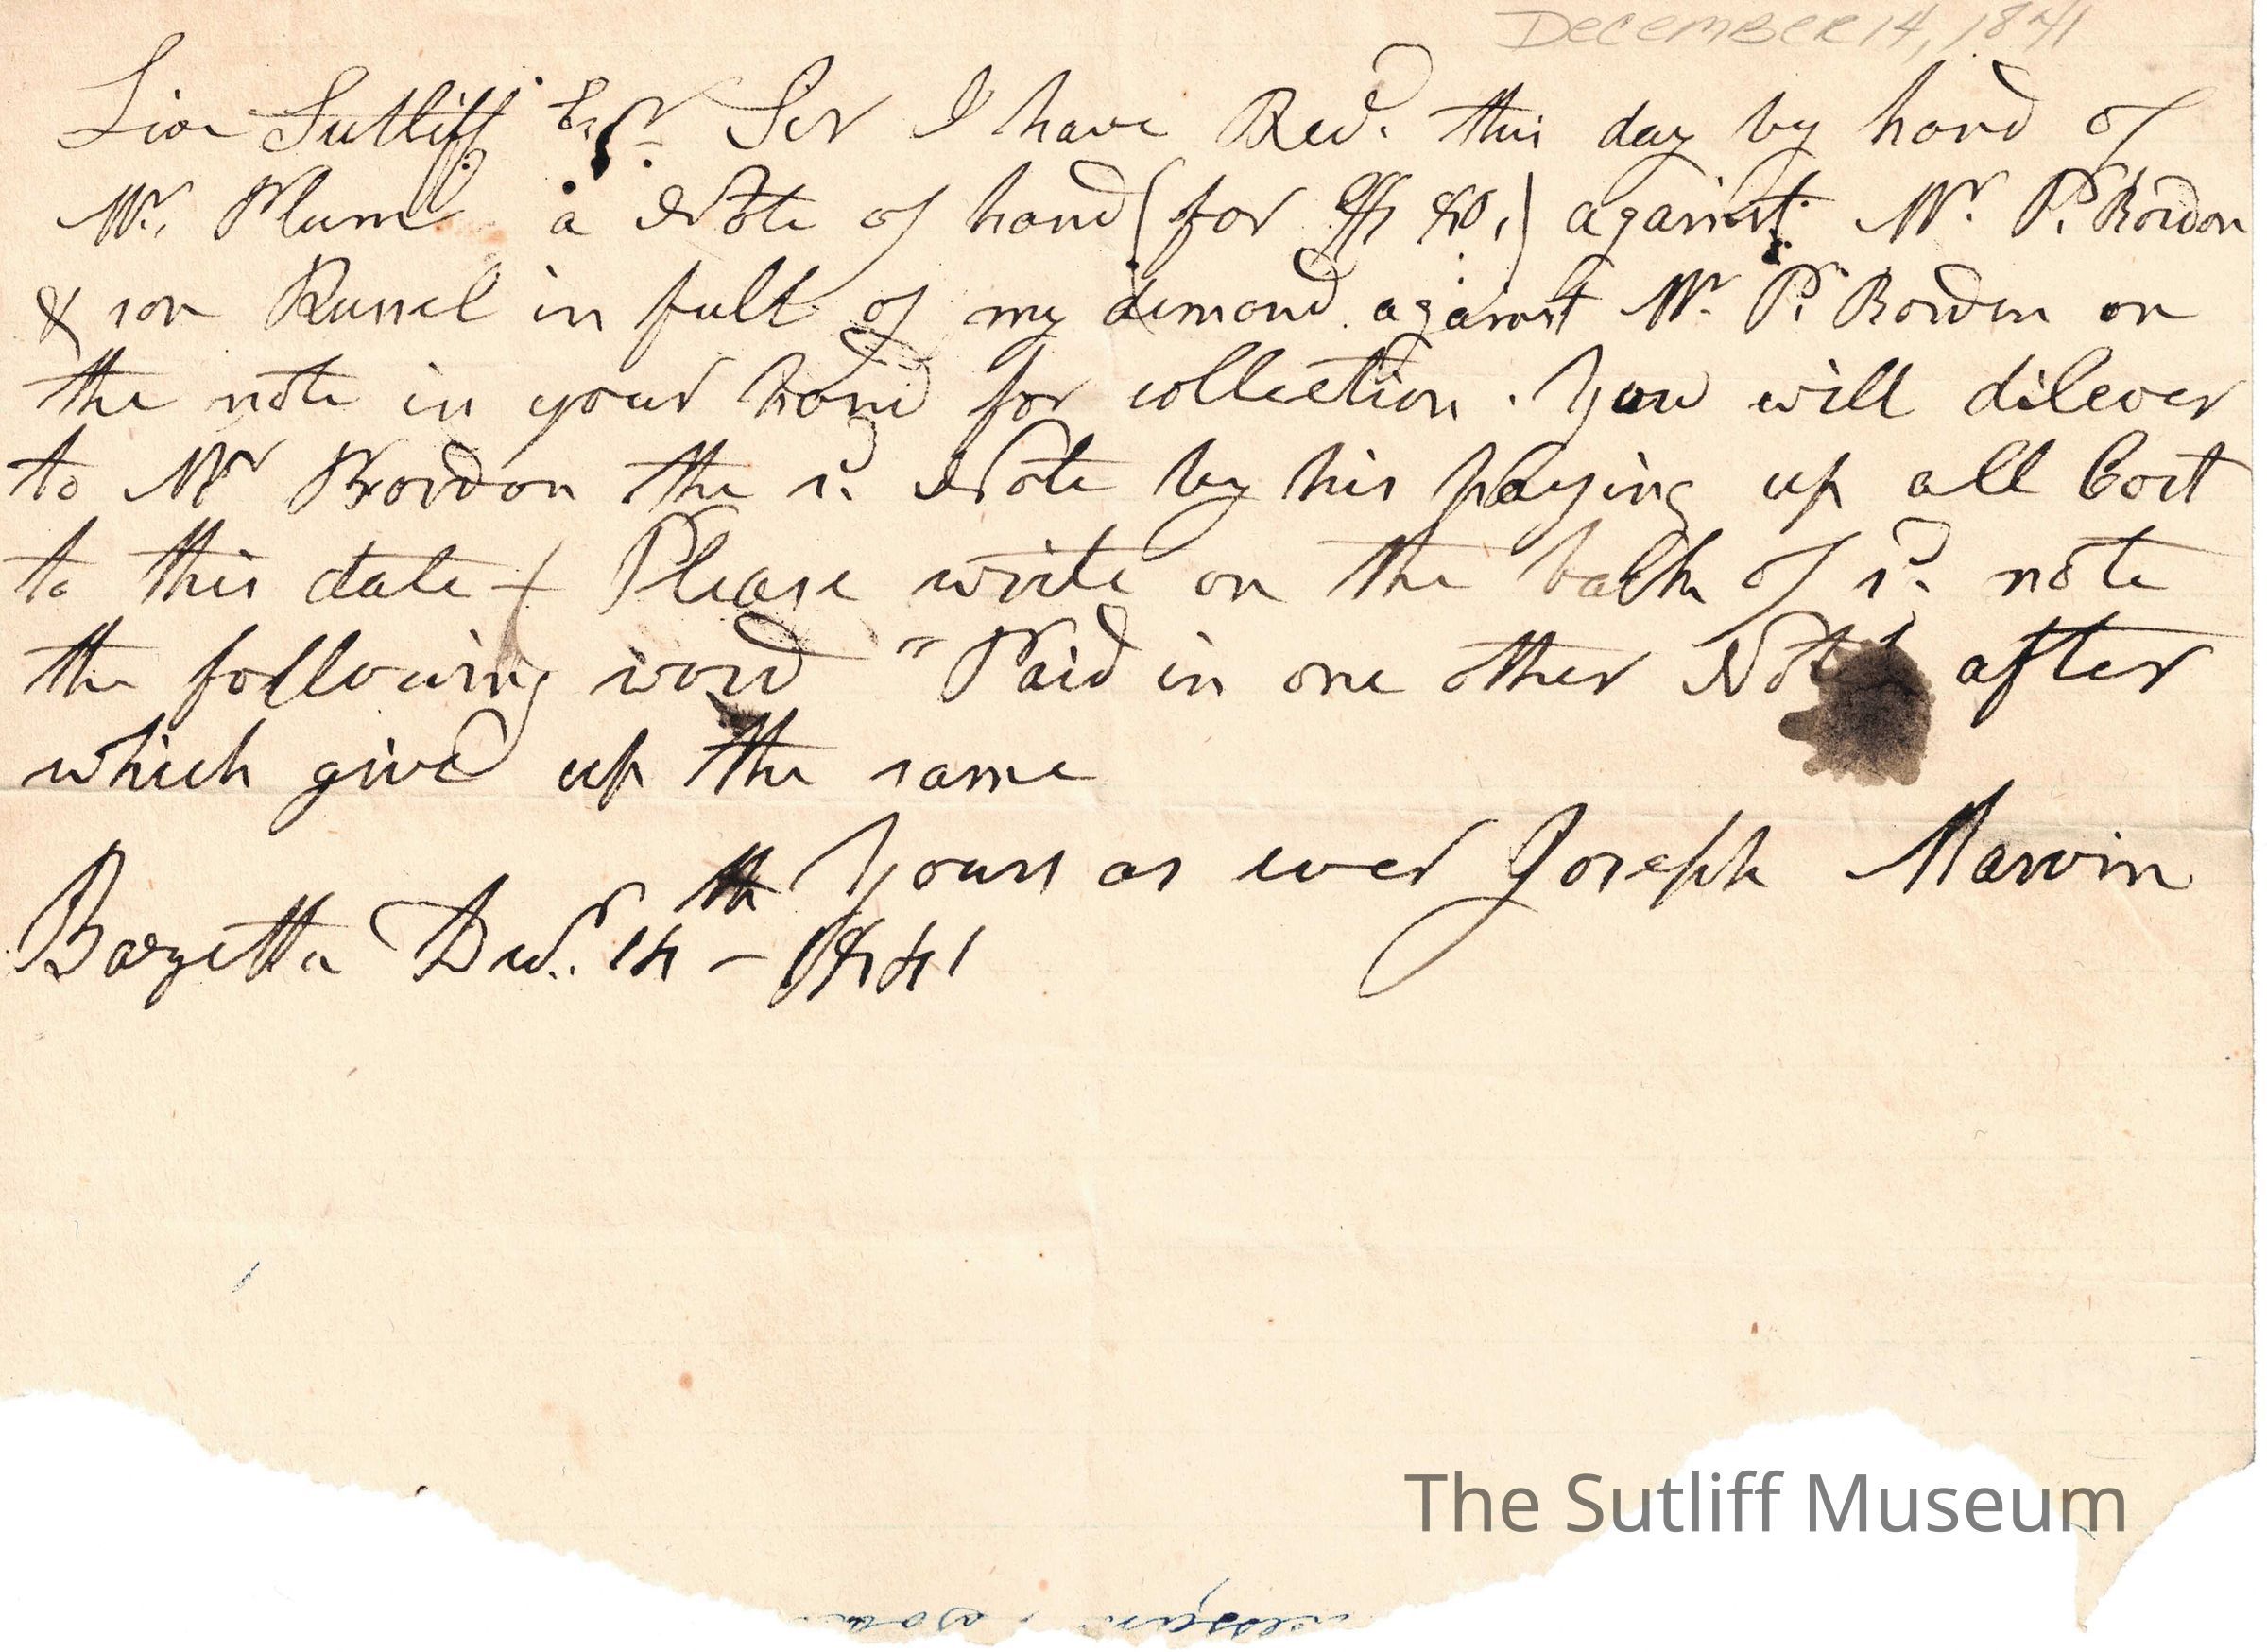 December 14, 1841
Sir Sutliff Esqr Sir I have Recd. this day by hand of
Mr. Plumb a Note of hand (for $80,) against Mr. P. Bordon
& son Russel in full of my demand against Mr. P. Borden on
the note in your hand for collection. You will dilever
to Mr Bordon the sd. Note by his paying up all Cost
to this date & Please write on the back of sd. note
the following word "Paid in one other Note" after
which give up the same
Yours as ever Joseph Marvin
Bazetta Decr. 14th – 1841
The Sutliff Museum